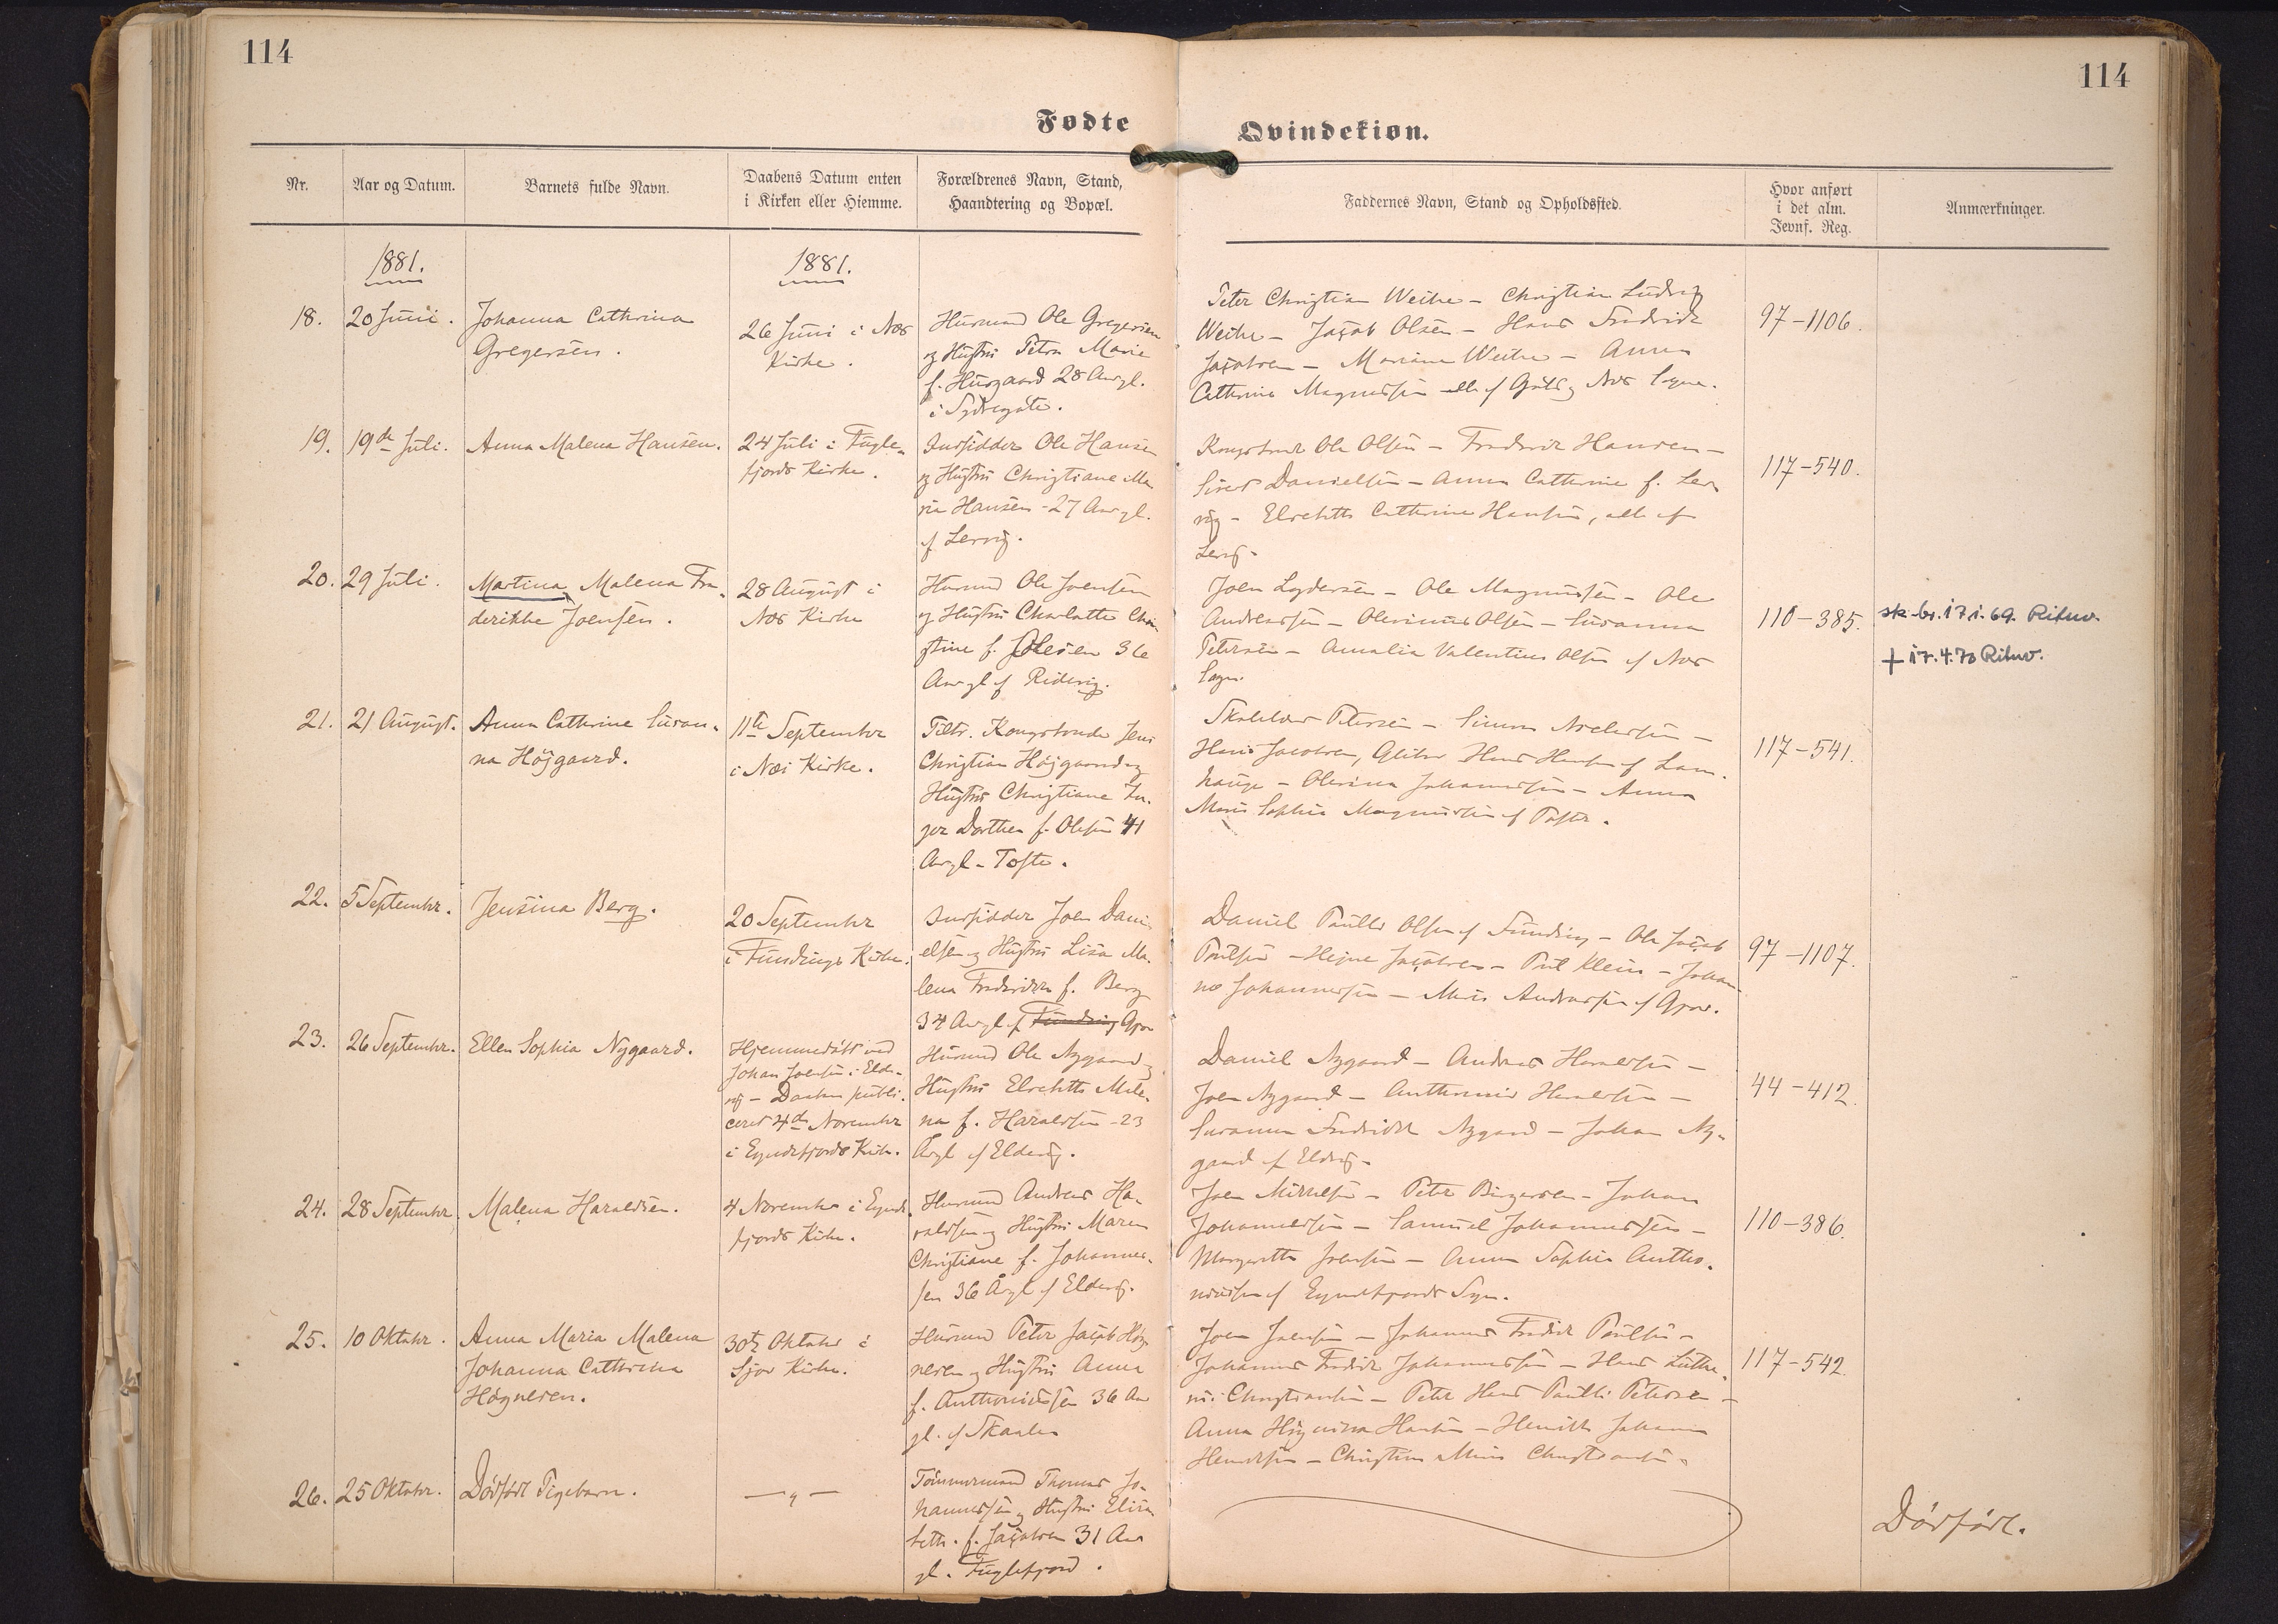 114
114
Fødte
Qvindekiøn.
Nr.
Aar og Datum.
Barnets fulde Navn.
Daabens Datum enten
i Kirken eller Hiemme.
Forældrenes Navn, Stand,
Haandtering og Bopæl.
Faddernes Navn, Stand og Opholdssted.
Hvor anført
i det alm.
Jevnf. Reg.
Anmærkninger.
1881.
1881.
18.
20 Juni.
Johanna Cathrina
Gregersen.
26 Juni i Næs
Kirke.
Husmand Ole Gregersen
og Hustru Petra Marie
f. Husgaard 28 Aar gl.
i Sydregøte.
Peter Christian Weihe - Christian Ludvig
Weihe - Jacob Olsen - Hans Fredrik
Jacobsen - Mariane Weihe - Anna
Cathrina Magnussen alle af Gøte, Næs Sogn.
97-1106.
19.
19de Juli.
Anna Malena Hansen.
24 Juli i Fugle-
fjords Kirke.
Indsidder Ole Hansen
og Hustru Christiane Ma
ria Hansen - 27 Aar gl.
af Lervig.
Kongsbonde Ole Olsen - Frederik Hansen -
Sivert Danielsen - Anna Cathrine f. Ler
vig - Elsebeth Cathrine Hansen, alle af
Lervig.
117-540.
20.
29 Juli.
Martina Malena Fre-
derikke Joensen.
28 August i
Næs Kirke
Husmand Ole Joensen
og Hustru Charlotte Chri
stine f. Olesen 36
Aar gl af Ridevig.
Joen Lydersen - Ole Magnussen - Ole
Andreassen - Olevinus Olsen - Susanna
Petersen - Amalia Valentina Olsen af Næs
Sogn.
110-385.
sk. br. 17.1.69. Rituv.
+ 17.4.70 Rituv.
21.
21 August.
Anna Cathrine Susan-
na Højgaard.
11te September
i Næs Kirke.
Filtr. Kongsbonde Jens
Christian Højgaard og
Hustru Christiane In-
ger Dorthea f. Olsen 41
Aar gl - Tofte.
Petersen - Simon
Hans Jacobsen, Hans Hansen af Lam-
hauge - Olevina Johannessen - Anna
Maria Sophia Magnussen af Tofte.
117-541.
22.
5 Septembr.
Jensina Berg.
20 September
i Fundings Kirke.
Indsidder Joen Dani
elsen og Hustru Lisa Ma-
lena Frederikke f. Berg
34 Aar gl. af Funding Gjov
Daniel Paulli Olsen af Funding - Ole Jacob
Poulsen - Hejne Jacobsen - Poul Klein - Johan
ne Johannessen - Maria Andreassen af Gjov.
97-1107.
23.
26 Septembr.
Ellen Sophia Nygaard.
Hjemmedøbt ved
Johan Joensen i Elde-
vig - Daaben publi-
ceret 4de November
i Eyndefjords Kirke.
Husmand Ole Nygaard og
Hustru Elsebeth Male-
na f. Haraldsen - 23
Aar gl af Eldevig.
Daniel Nygaard - Andreas Haraldsen -
Joen Nygaard - Anthonius Haraldsen -
Susanna Fredrikke Nygaard - Johan Ny-
gaard af Eldevig.
44-412.
24.
28 Septembr.
Malena Haraldsen.
4 November i Eynde
fjords Kirke.
Husmand Andreas Ha-
raldsen og Hustru Maren
Christiane f. Johannes-
sen 36 Aar gl af Eldevig.
Joen Mikkelsen - Peter Birgersen - Johan
Johannessen - Samuel Johannessen -
Margretha Joensen - Anna Sophia Antho-
niussen af Eyndefjords Sogn.
110-386.
25.
10 Oktobr.
Anna Maria Malena
Johanna Cathrina
Høgnesen.
30te Oktober i
Sjov Kirke.
Husmand Peter Jacob Høg
nesen og Hustru Anna
f. Anthoniussen 36 Aar
gl. af Skaalen
Joen Joensen - Johannes Fredrik Poulsen -
Johannes Fredrik Johannessen - Hans Luthe-
rus Christiansen - Peter Hans Paulli Petersen -
Anna Høgnina Hansen - Henrikke Johanna
Hendriksen - Christina Maria Christiansen.
117-542.
26.
25 Oktobr.
Dødfødt Pigebarn.
— „ —
Tømmermand Thomas Jo-
hannessen og Hustru Elisa
beth. f. Jacobsen 31 Aar
gl. Fuglefjord.
Dødfødt.